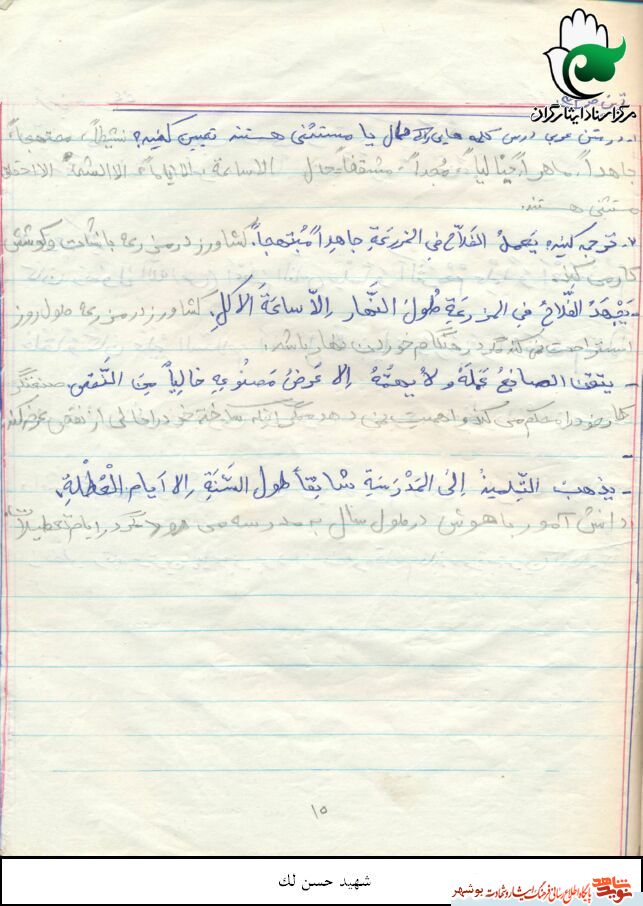 تمرین ص
مرکز اسناد ایثارگران
۱- در متن عربی درس کلمه هایی را که حال یا مستثنی هستند تعیین کنید؟ نشیطاً، مبتهجاً،
جاهداً، ماهراً، خالیاً، مُجداً، مشفقاً حال الا ساعة، الا ایاماً، الا
مستثنی هستند:
۲- ترجمه کنید، یَعملُ الفَلّاحُ فی المَزرَعَةِ جاهِداً مُبْتهجاً. کشاورز در مزرعه با نشاط و کوشش
کار می کند.
- یَجْهَدُ الفَّلاحُ فی المزرعَةِ طُولَ النَّهارِ اِلّا ساعَةَ الاَکلِ. کشاورز در مزرعه طول روز
استراحت نمی کند مگر هنگام خوردن نهار باشد:
- یتقن الصانعُ عَمَلَهُ ولا یهمَّهُ الا عَرضُ مَصنُوعِهِ خالیاً مِنَ النَّقصِ. صنعتگر
کار خود را محکم می کند و اهمیت نمی دهد مگر اینکه ساخته خود را خالی از نقص عرضه کند
-
- یذهبُ التِّلمیذُ اِلیَ المَدْرَسَةِ شایقاً طولَ السَّنَةِ اِلا اَیامَ الْعُطْلَةِ.
دانش آموز با هوش در طول سال به مدرسه می رود مگر در ایام تعطیلات
۱۵
شهید حسن لک
نوید شاهد پایگاه اطلاع رسانی فرهنگ ایثار و شهادت بوشهر